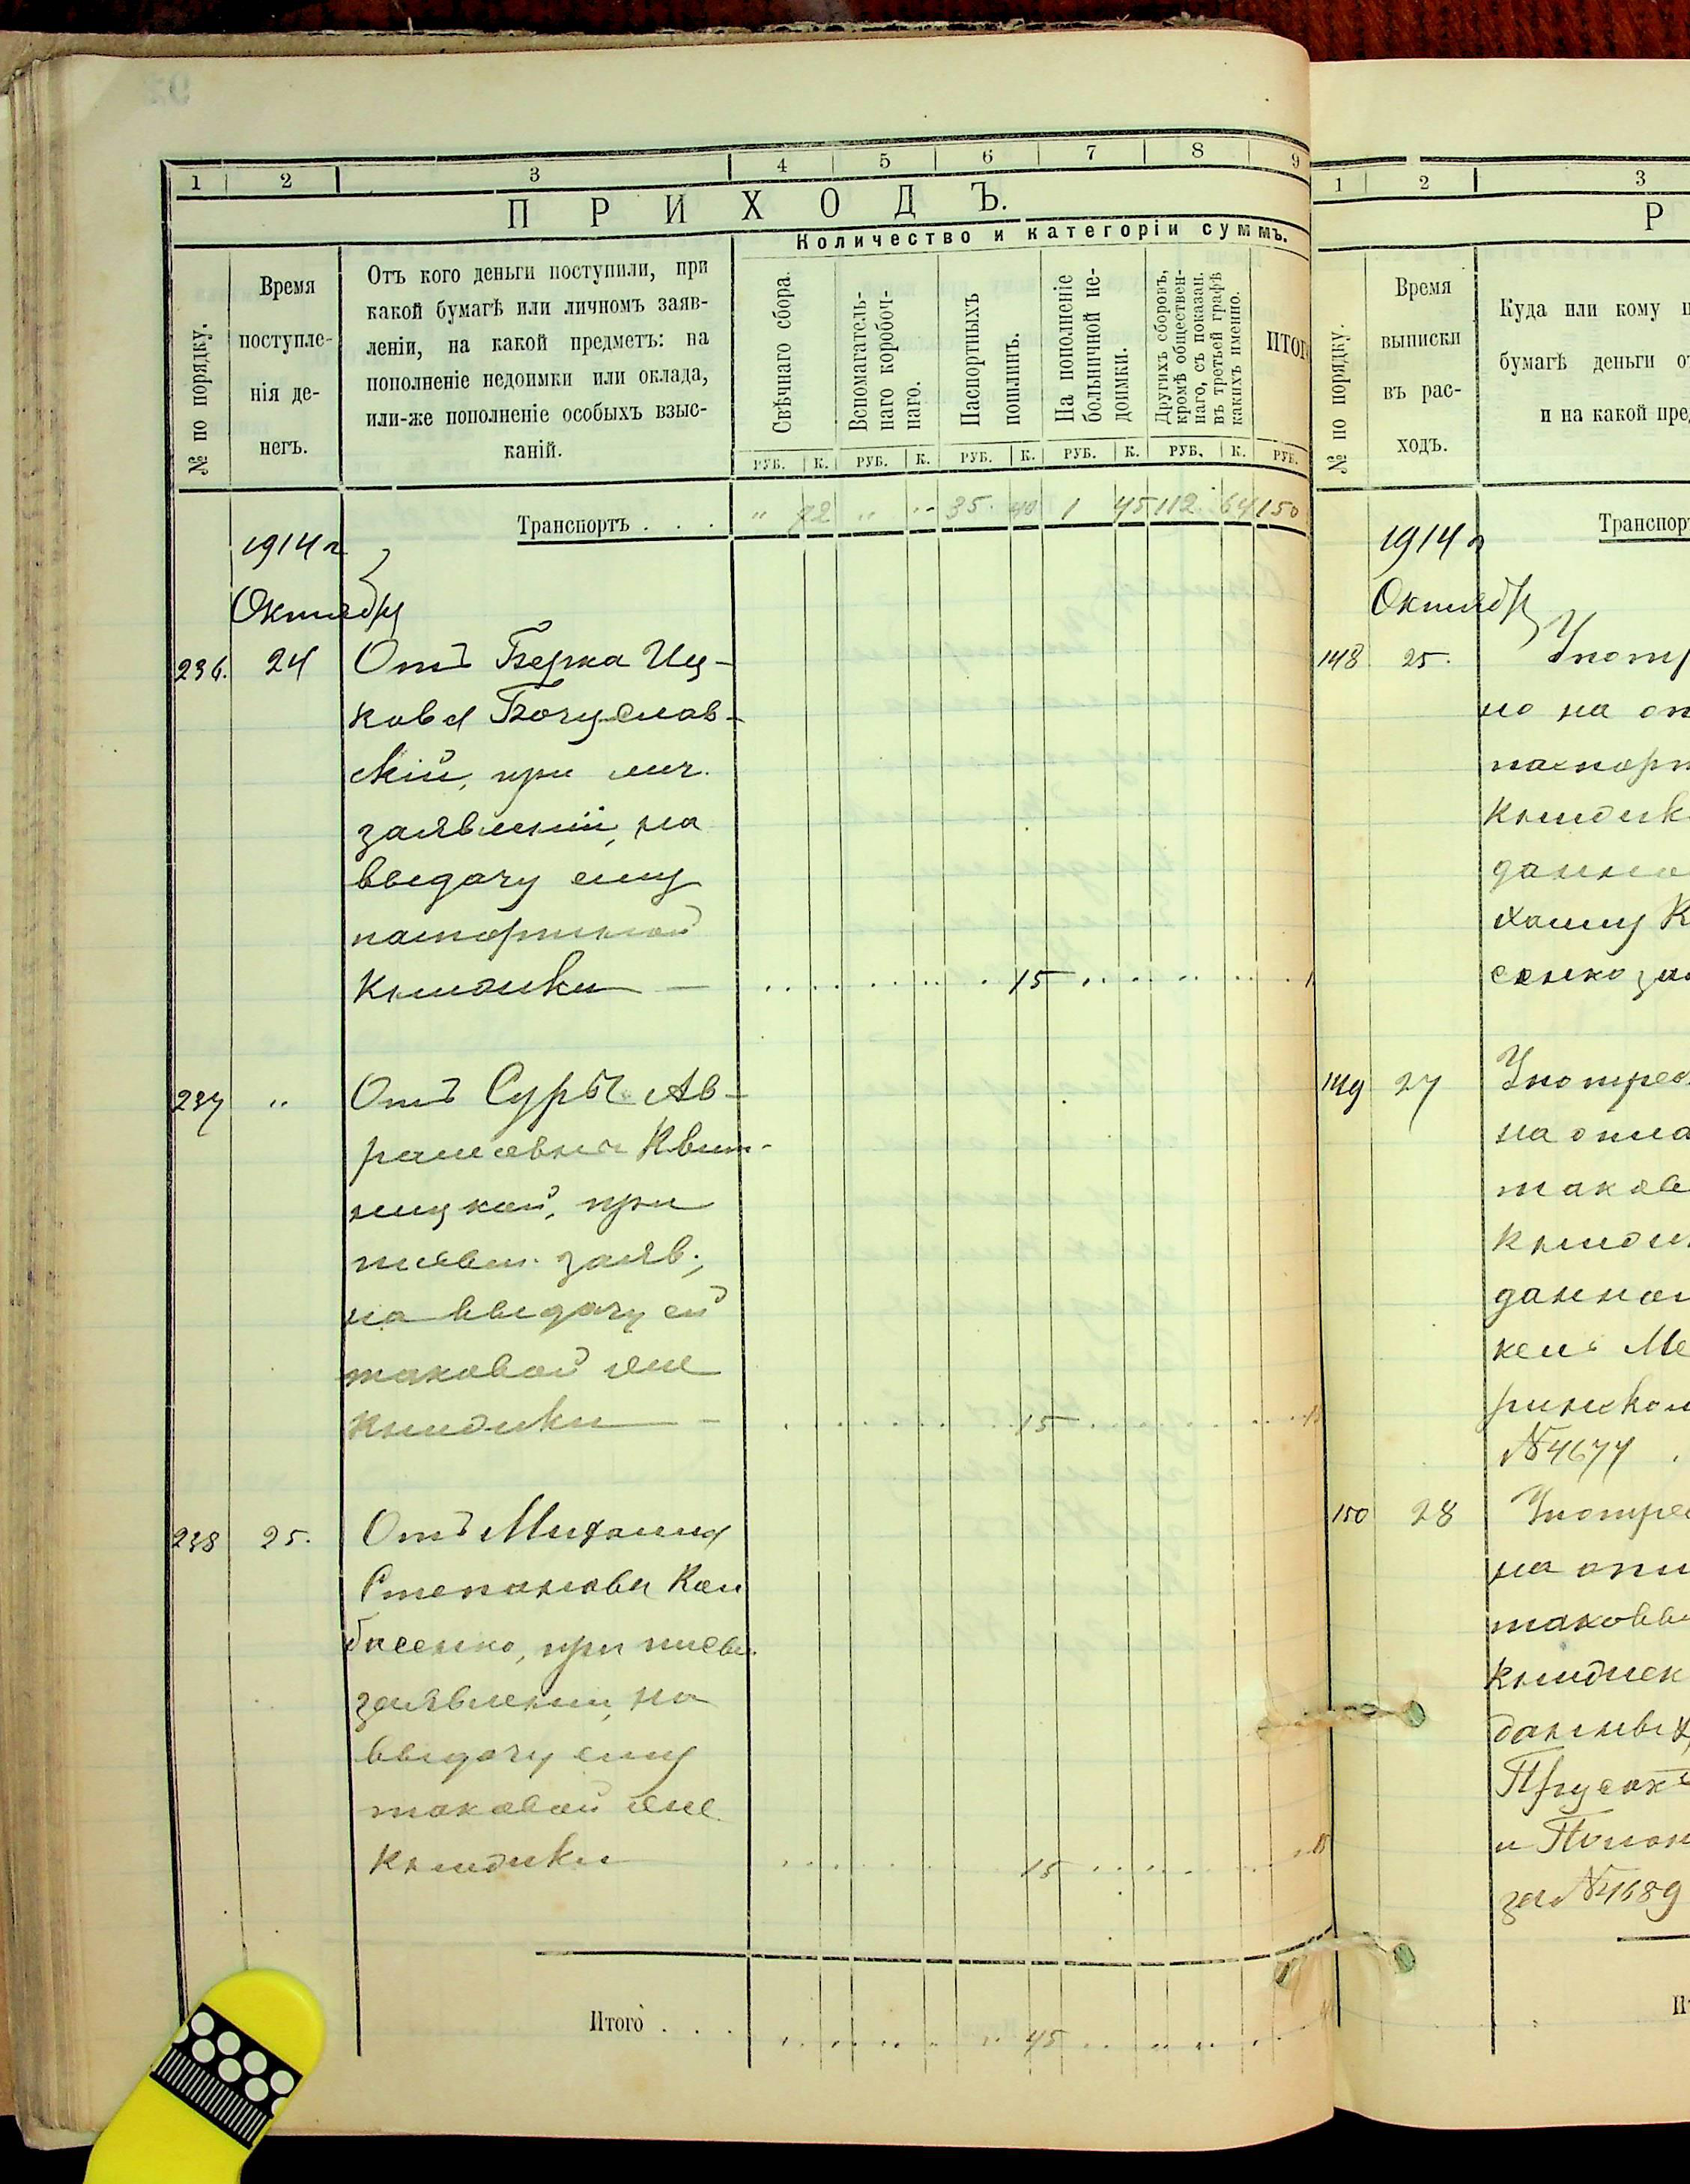 1 2 3 4 5 6 7 8 9
ПРИХОДЪ.
Количество и категоріи суммъ.
№ по порядку.
Время
поступле-
нія де-
негъ.
Отъ кого деньги поступили, при
какой бумагѣ или личномъ заяв-
леніи, на какой предметъ: на
пополненіе недоимки или оклада,
или-же пополненіе особыхъ взыс-
каній.
Свѣчнаго сбора.
Вспомагатель-
наго коробоч-
наго.
Паспортныхъ
пошлинъ.
На пополненіе
больничной не-
доимки.
Другихъ сборовъ,
кромѣ обществен-
наго, съ показан.
въ третьей графѣ
какихъ именно.
ИТОГ
РУБ. К. РУБ. К. РУБ. К. РУБ. К. РУБ. К. РУБ.
Транспортъ . . . " 72 " " 35 40 1 45 112 64 150
1914 г
Октября
236. 24 Отъ Берка Иц-
кова Богуслав-
скій, при лич.
заявленіи, на
выдачу ему
паспортной
книжки — 15
237 " Отъ Суры Ав-
рамовна Квит-
ницкой, при
письм. заяв.,
на выдачу ей
таковой же
книжки — 15 15
238 25. Отъ Михаила
Степанова Кол
басенко, при письм.
заявленіи, на
выдачу ему
таковой же
книжки 15 15
Итого . . . 45
1 2 3
Р
№ по порядку.
Время
выписки
въ рас-
ходъ.
Куда или кому
бумагѣ деньги
и на какой пре
Транспор
1914 г
Октября
148 25. Употр
но на оп
паспорт
книжек
данно
хаилу К
сенко за
149 27 Употреб
на опла
таков
книжк
данной
кель Ме
ринском
№ 4677
150 28 Употреб
на опл
таковы
книжек
данных
Прусак
и Полон
за № 4689